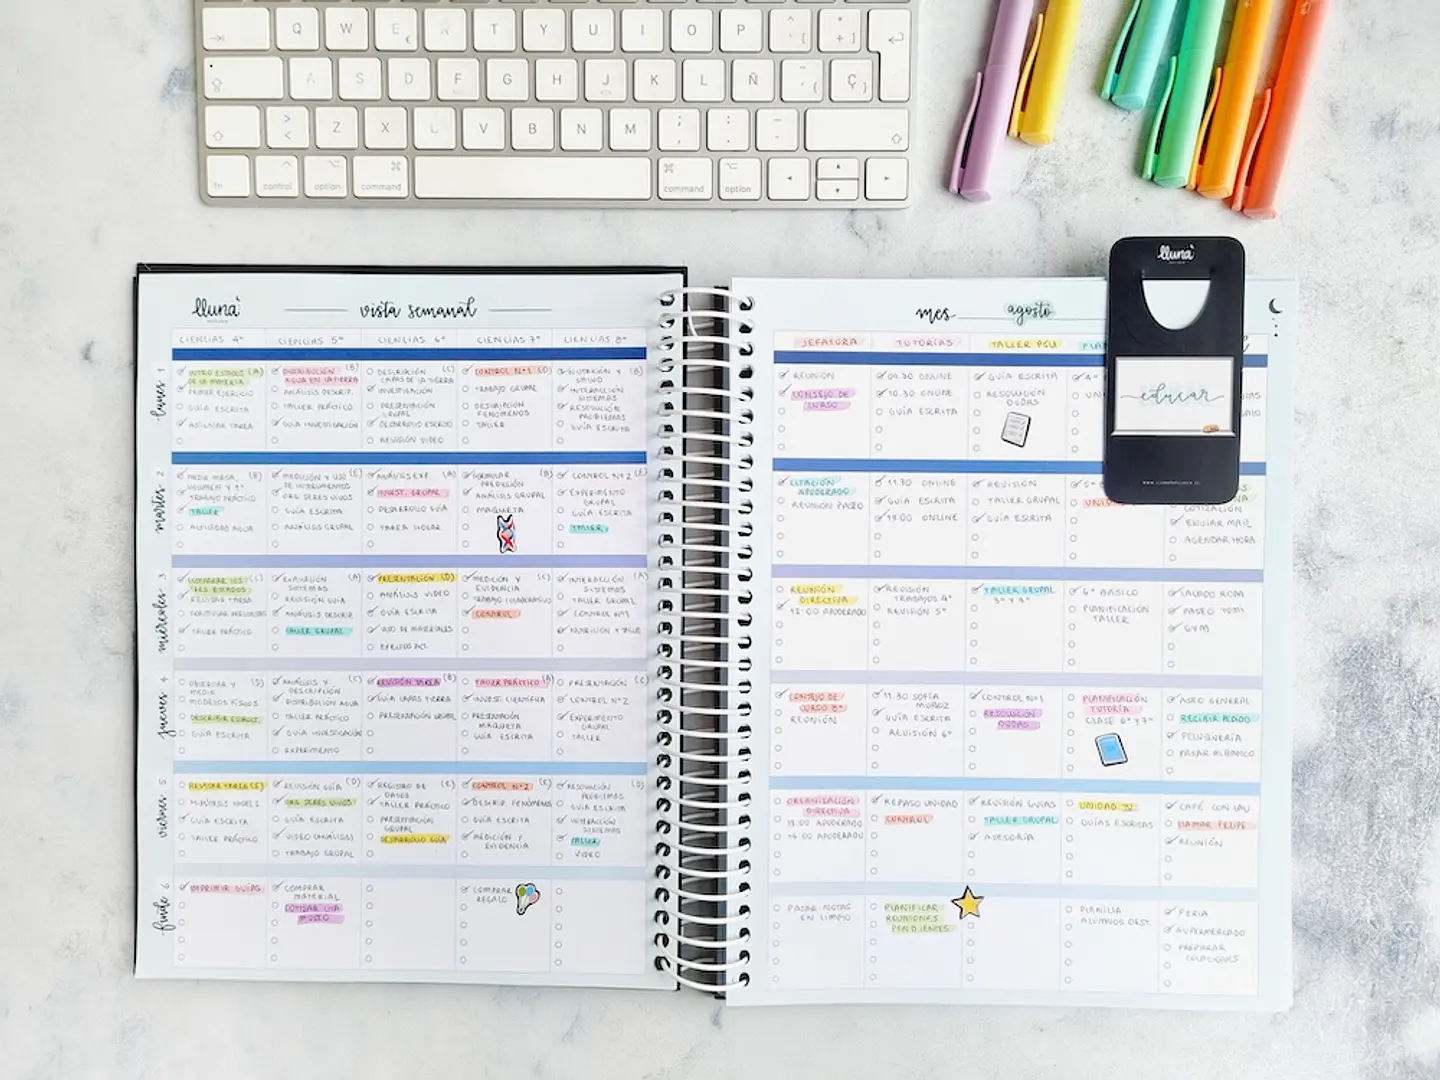 Q W E R T Y U I O P
A S D F G H J K L Ñ Ç
Z X C V B N M
fn control option command command option
lluna
vista semanal
CIENCIAS 4° CIENCIAS 5° CIENCIAS 6° CIENCIAS 7° CIENCIAS 8°
lunes 1
INTRO ESTADOS (A)
DE LA MATERIA
PRIMER EJERCICIO
GUÍA ESCRITA
ASIGNAR TAREA
DISTRIBUCIÓN (B)
AGUA EN LA TIERRA
ANÁLISIS DESCRIP.
TALLER PRÁCTICO
GUÍA INVESTIGACIÓN
DESCRIPCIÓN (C)
CAPAS DE LA TIERRA
INVESTIGACIÓN
PRESENTACIÓN
GRUPAL
DESARROLLO ESCRITO
REVISIÓN VIDEO
CONTROL N°1 (D)
TRABAJO GRUPAL
DESCRIPCIÓN
FENÓMENOS
TALLER PRÁCTICO
NUTRICIÓN Y (B)
SALUD
INTERACCIÓN
SISTEMAS
RESOLUCIÓN
PROBLEMAS
GUÍA ESCRITA
martes 2
MEDIR MASA, (B)
VOLUMEN Y T°
TRABAJO PRÁCTICO
TALLER
ACTIVIDAD AGUA
MEDICIÓN Y USO (C)
DE INSTRUMENTOS
ORG. SERES VIVOS
GUÍA ESCRITA
ANÁLISIS GRUPAL
ANÁLISIS EXP. (A)
INVEST. GRUPAL
DESARROLLO GUÍA
TAREA HOGAR
FORMULAR (B)
PREDICCIÓN
ANÁLISIS GRUPAL
MAQUETA
CONTROL N°2 (E)
EXPERIMENTO
GRUPAL
GUÍA ESCRITA
TALLER
miércoles 3
COMPARAR LOS (C)
TRES ESTADOS
REVISAR TAREA
FORMULAR PREGUNTAS
TALLER PRÁCTICO
EXPLICACIÓN (A)
SISTEMAS
REVISIÓN GUÍA
ANÁLISIS DESCRIP.
TALLER GRUPAL
PRESENTACIÓN (D)
ANÁLISIS VIDEO
GUÍA ESCRITA
USO DE MATERIALES
EJERCICIOS ACT.
MEDICIÓN Y (C)
EVIDENCIA
TRABAJO COLABORATIVO
CONTROL
INTERACCIÓN (A)
SISTEMAS
TALLER GRUPAL
CONTROL N°1
NUTRICIÓN Y SALUD
jueves 4
OBSERVAR Y (D)
MEDIR
MODELOS FÍSICOS
DESCRIBIR ESTADOS
GUÍA ESCRITA
ANÁLISIS Y (C)
DESCRIPCIÓN
DISTRIBUCIÓN AGUA
TALLER PRÁCTICO
GUÍA INVESTIGACIÓN
EXPERIMENTO
REVISIÓN TAREA (B)
GUÍA CAPAS TIERRA
PRESENTACIÓN GRUPAL
TALLER PRÁCTICO (A)
INVEST. CIENTÍFICA
PRESENTACIÓN
MAQUETA
GUÍA ESCRITA
PRESENTACIÓN (C)
CONTROL N°2
EXPERIMENTO
GRUPAL
TALLER
viernes 5
REVISAR TAREA (E)
HIPÓTESIS NIVEL 1
GUÍA ESCRITA
TALLER PRÁCTICO
REVISIÓN GUÍA (D)
ORG. SERES VIVOS
GUÍA ESCRITA
VIDEO (ANÁLISIS)
TRABAJO GRUPAL
REGISTRO DE (E)
DATOS
TALLER PRÁCTICO
PRESENTACIÓN
GRUPAL
DESARROLLO GUÍA
CONTROL N°2 (E)
DESCRIP. FENÓMENOS
GUÍA ESCRITA
MEDICIÓN Y
EVIDENCIA
RESOLUCIÓN (D)
PROBLEMAS
GUÍA ESCRITA
INTERACCIÓN
SISTEMAS
TALLER
VIDEO
finde 6
IMPRIMIR GUÍAS
COMPRAR
MATERIAL
COTIZAR
MUSEO
COMPRAR
REGALO
mes agosto
JEFATURA TUTORÍAS TALLER PSU
REUNIÓN
CONSEJO DE
CURSO
09.30 ONLINE
10.30 ONLINE
GUÍA ESCRITA
GUÍA ESCRITA
RESOLUCIÓN
DUDAS
CITACIÓN
APODERADO
REUNIÓN PACEO
11.30 ONLINE
GUÍA ESCRITA
15.00 ONLINE
REVISIÓN
TALLER GRUPAL
GUÍA ESCRITA
COTIZACIÓN
ENVIAR MAIL
AGENDAR HORA
REUNIÓN
DIRECTIVA
12:00 APODERADO
REVISIÓN
TRABAJOS 4°
REVISIÓN 5°
TALLER GRUPAL
3° Y 4°
6° BÁSICO
PLANIFICACIÓN
TALLER
LAVADO ROPA
PASEO TOMI
GYM
CONSEJO DE
CURSO 8°
REUNIÓN
11.30 SOFÍA
MUÑOZ
GUÍA ESCRITA
REVISIÓN 6°
CONTROL N°1
RESOLUCIÓN
DUDAS
PLANIFICACIÓN
TUTORÍA
CLASE 6° Y 7°
ASEO GENERAL
RECIBIR PEDIDO
PELUQUERÍA
PASAR AL BANCO
ORGANIZACIÓN
DIRECTIVA
15:00 APODERADO
16:00 APODERADO
REPASO UNIDAD
CONTROL
REVISIÓN GUÍAS
TALLER GRUPAL
ASESORÍA
UNIDAD IV
GUÍAS ESCRITAS
CAFÉ CON LAU
LLAMAR FELIPE
REUNIÓN
PASAR NOTAS
EN LIMPIO
PLANIFICAR
REUNIONES
PENDIENTES
PLANILLA
ALUMNOS DEST.
FERIA
SUPERMERCADO
PREPARAR
COLACIONES
lluna
educar